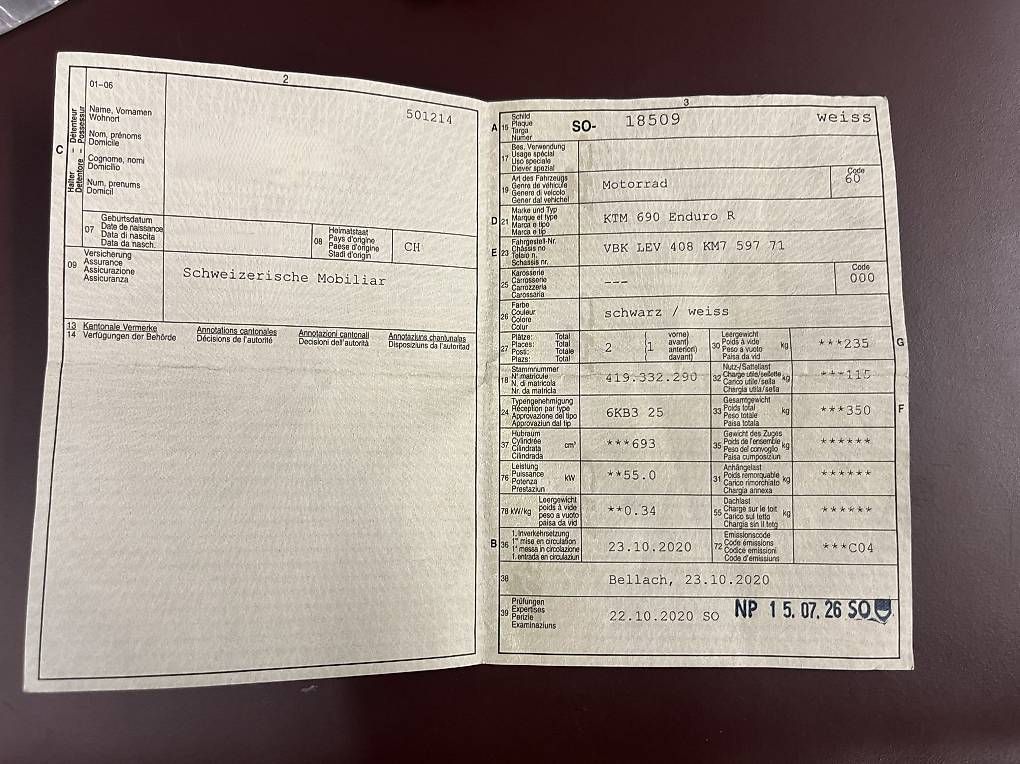 2
01-06
C
Halter – Détenteur
Detentore – Possessur
Name, Vornamen
Wohnort
Nom, prénoms
Domicile
Cognome, nomi
Domicilio
Num, prenums
Domicil
501214
07
Geburtsdatum
Date de naissance
Data di nascita
Data da nasch.
08
Heimatstaat
Pays d'origine
Paese d'origine
Stadi d'origin
CH
09
Versicherung
Assurance
Assicurazione
Assicuranza
Schweizerische Mobiliar
13 Kantonale Vermerke
14 Verfügungen der Behörde
Annotations cantonales
Décisions de l'autorité
Annotazioni cantonali
Decisioni dell'autorità
Annotaziuns chantunalas
Disposiziuns da l'autoritad
3
A 15
Schild
Plaque
Targa
Numer
SO- 18509 weiss
17
Bes. Verwendung
Usage spécial
Uso speciale
Diever spezial
19
Art des Fahrzeugs
Genre de véhicule
Genere di veicolo
Gener dal vehichel
Motorrad
Code
60
D 21
Marke und Typ
Marque et type
Marca e tipo
Marca e tip
KTM 690 Enduro R
E 23
Fahrgestell-Nr.
Châssis no
Telaio n.
Schassis nr.
VBK LEV 408 KM7 597 71
25
Karosserie
Carrosserie
Carrozzeria
Carossaria
---
Code
000
26
Farbe
Couleur
Colore
Colur
schwarz / weiss
27
Plätze: Total
Places: Total
Posti: Totale
Plazs: Total
2 (1
vorne)
avant)
anteriori)
davant)
30
Leergewicht
Poids à vide
Peso a vuoto
Paisa da vid
kg
***235
G
18
Stammnummer
N° matricule
N. di matricola
Nr. da matricla
419.332.290
32
Nutz-/Sattellast
Charge utile/sellette
Carico utile/sella
Chargia utila/sella
kg
***115
24
Typengenehmigung
Réception par type
Approvazione del tipo
Approvaziun dal tip
6KB3 25
33
Gesamtgewicht
Poids total
Peso totale
Paisa totala
kg
***350
F
37
Hubraum
Cylindrée
Cilindrata
Cilindrada
cm³
***693
35
Gewicht des Zuges
Poids de l'ensemble
Peso del convoglio
Paisa cumposiziun
kg
******
76
Leistung
Puissance
Potenza
Prestaziun
kW
**55.0
31
Anhängelast
Poids remorquable
Carico rimorchiato
Chargia annexa
kg
******
78 kW/kg
Leergewicht
poids à vide
peso a vuoto
paisa da vid
**0.34
55
Dachlast
Charge sur le toit
Carico sul tetto
Chargia sin il tetg
kg
******
B 36
1. Inverkehrsetzung
1re mise en circulation
1a messa in circolazione
1. entrada en circulaziun
23.10.2020
72
Emissionscode
Code émissions
Codice emissioni
Code d'emissiuns
***C04
38
Bellach, 23.10.2020
39
Prüfungen
Expertises
Perizie
Examinaziuns
22.10.2020 SO
NP 15.07.26 SO